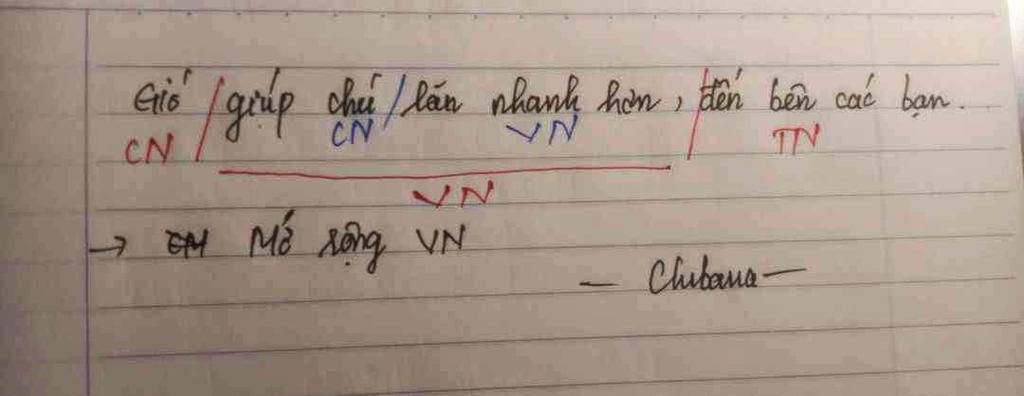 Gió / giúp chú / lăn nhanh hơn, / đến bên các bạn.
CN CN VN TN
VN
→ Mở rộng VN
— Chibana —